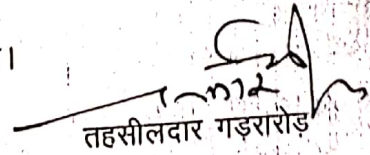 ।
तहसीलदार गड़रारोड़